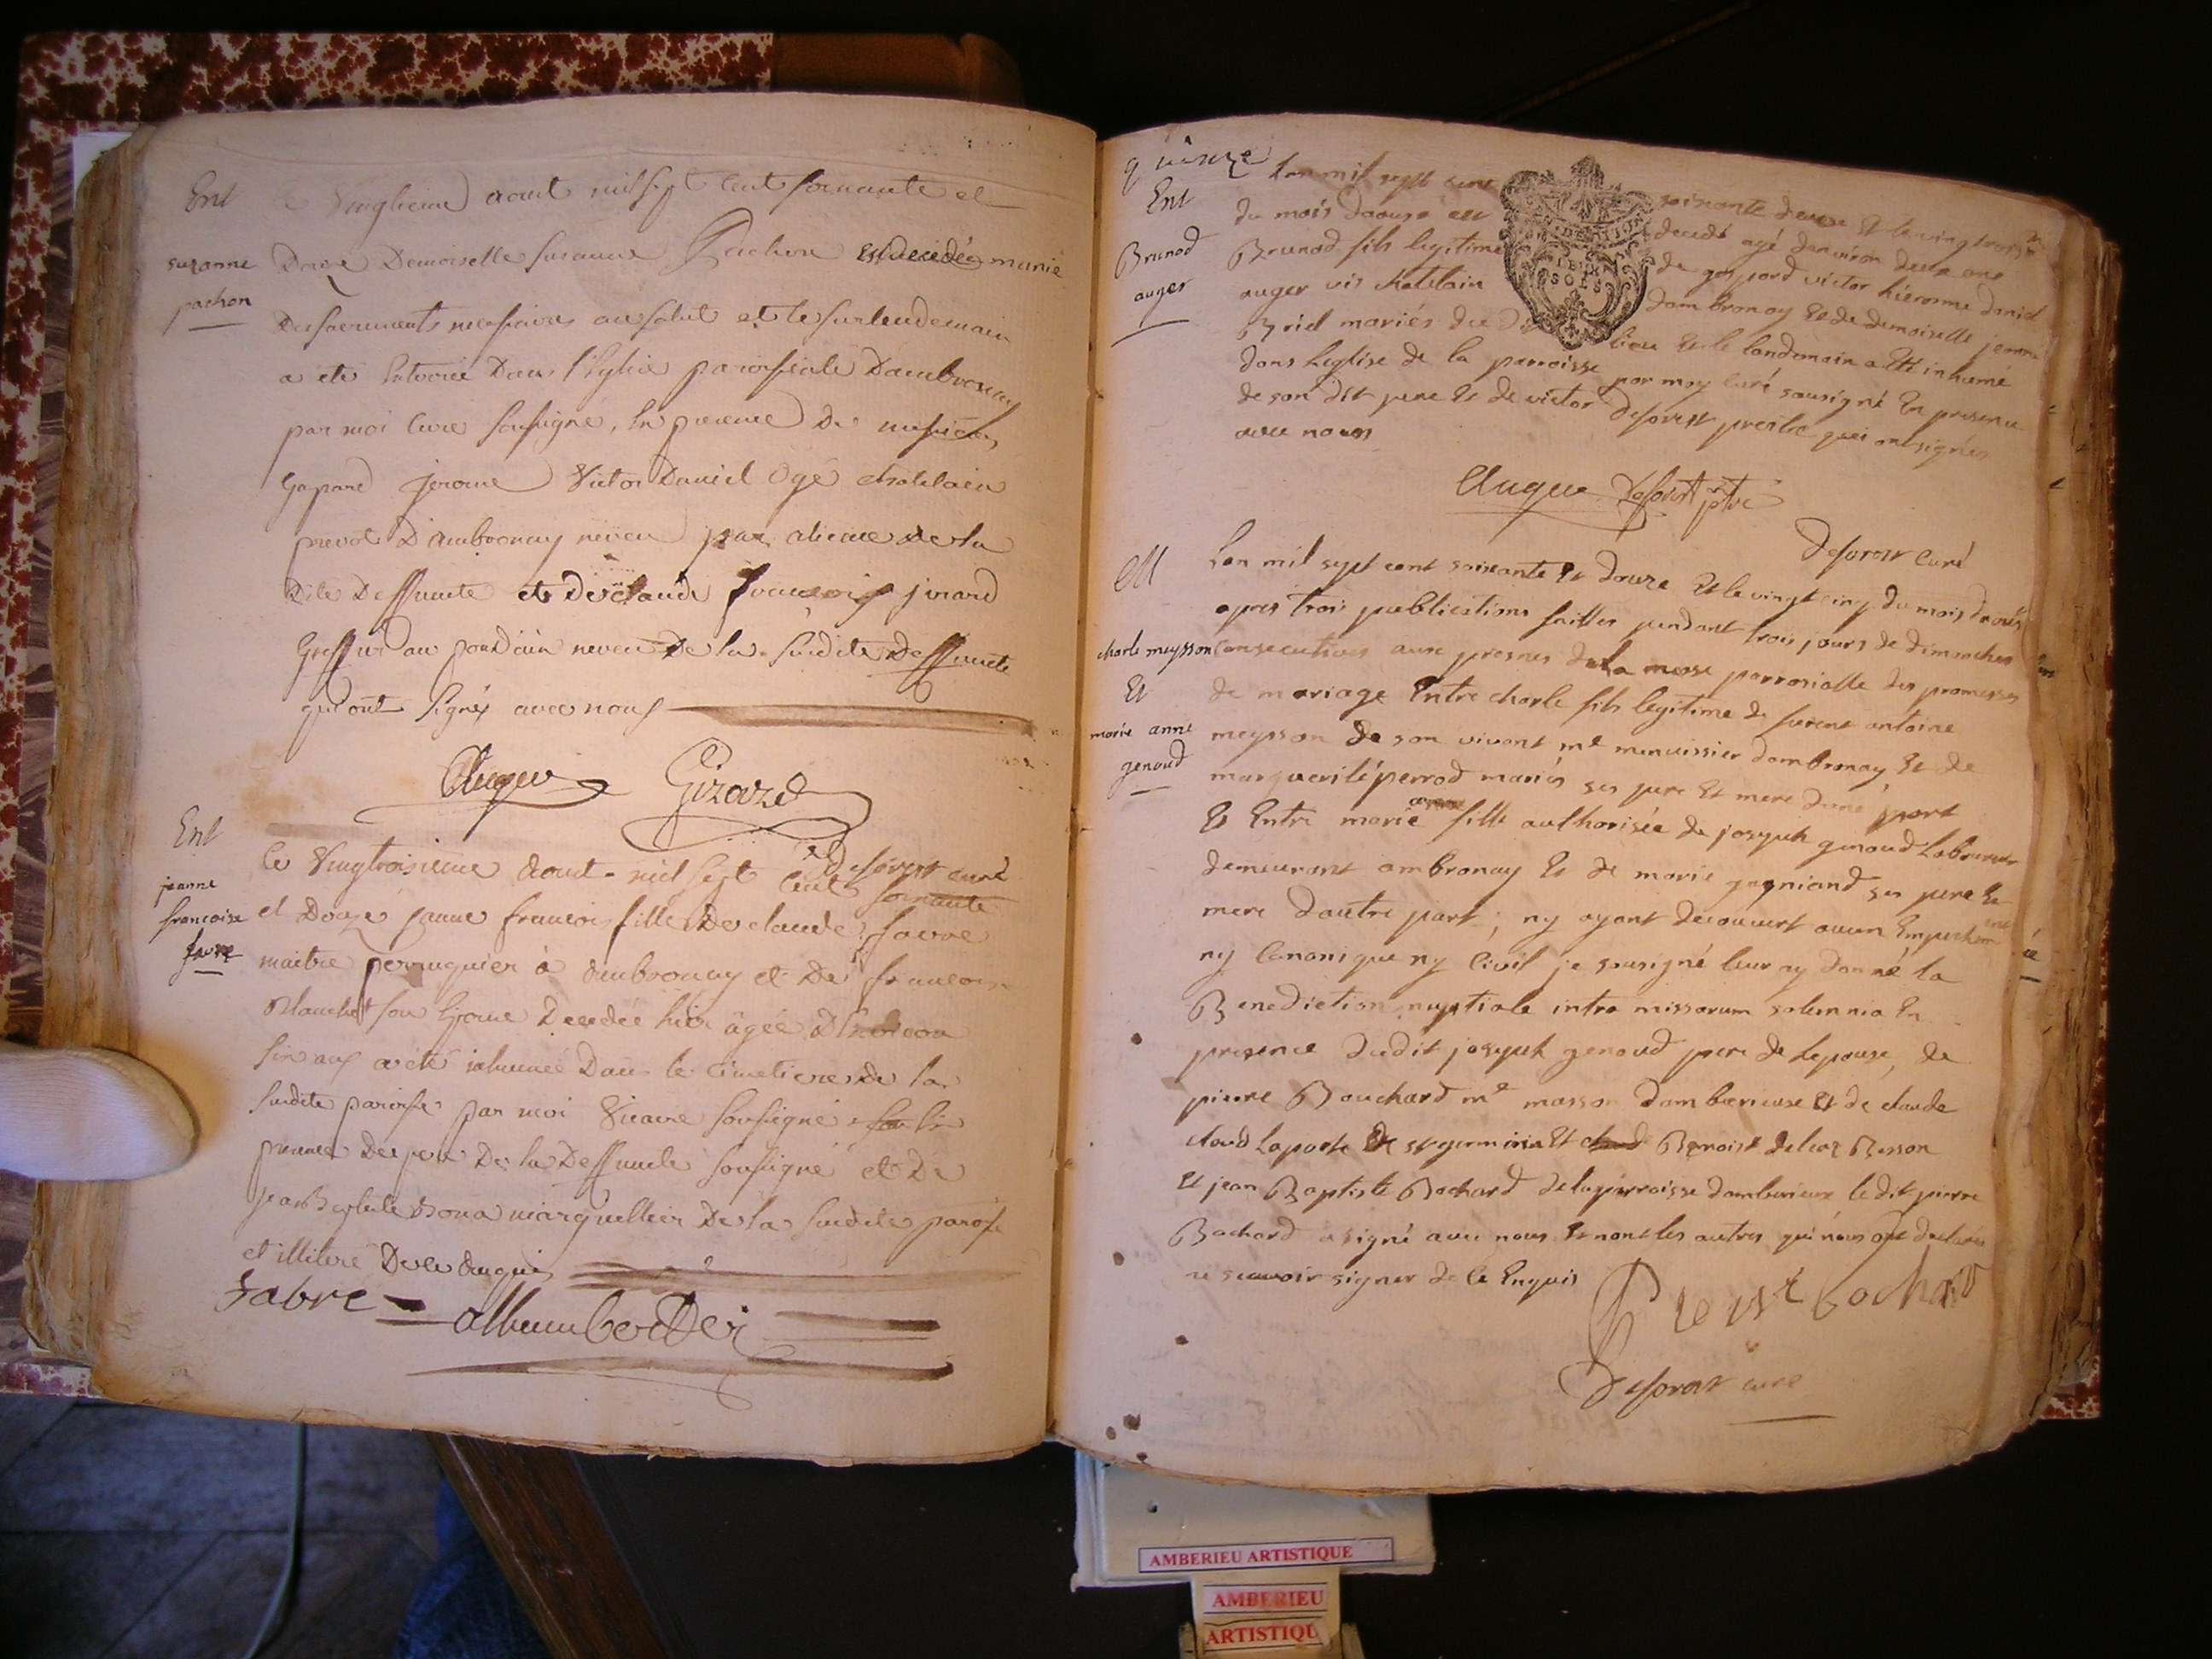 Ent
suzanne
pachon
Vingtieme aout mil sept cent soixante et
Douze Demoiselle susanne Pachon est decedée munie
Des sacrements necessaires au salut et le surlendemain
a eté Enterrée Dans l'Eglise paroissiale Dambronay
par moi Curé soussigné, En presence De messieurs
Gaspard jerome Victor Daniel Ogé chatelain
prevot D'ambronay neveu par alience de la
Dite Deffunte et De claude francois jirard
Greffier au pondain neveu De la susdite Deffunte
qui ont signés avec nous
Auger Girard
Deforest curé
Ent
jeanne
francoise
favre
le Vingtroisieme aout mil sept cent soixante
et Douze janne francois fille De claude favre
maitre perruquier à ambronay et De francoise
Blanchet son Epouse Decedée hier âgée D'environ
six ans a eté inhumée Dans le cimetiere de la
susdite paroisse par moi Vicaire soussigné
presence Du pere De la Deffunte soussigné et De
jean Baptiste Bona marguellier De la susdite paroisse
et illiteré De ce enquis
Fabre
quinze
Ent
Brunod
auger
Lan mil sept cent soixante douze Et le vingt trois
du mois daoust est decedé agé denviron deux ans
Brunod fils legitime de gaspard victor hierosme daniel
auger vis chatelain dambronay Et de demoiselle jeanne
Briel mariés du dit lieu Et le landemain a Eté inhumé
dans Leglise de la parroisse par moy Curé sousigné En presence
de son dit pere Et de victor deforest prestre qui ont signés
avec nous
Auger Deforest ptre
Deforest Curé
M
charle meysson
Et
marie anne
genoud
Lan mil sept cent soixante Et douze Et le vingt cinq du mois daoust
apres trois publications faittes pendant trois jours de dimanches
consecutives aux prosnes de La messe parrosialle des promesses
de mariage Entre charle fils legitime de furent antoine
meysson de son vivant me menuissier dambronay Et de
marguerite perrod mariés ses pere Et mere dune part
Et Entre marie anne fille authorisée de joseph genoud Laboureur
demeurant ambronay Et de marie gagniand ses pere Et
mere dautre part; ny ayant decouvert aucun Empechement
ny Canonique ny Civil je sousigné leur ay donné la
Benediction nuptiale intra missarum solemnia En
presence dudit joseph genoud pere de Lepouse, de
pierre Bouchard me masson dambereuse Et de claude
claud Laporte de st germain Et Benoist Besson
Et jean Baptiste Bochard de la parroisse damberieux le dit pierre
Bochard a signé avec nous Et non les autres qui nous ont declarés
ne scavoir signer de ce Enquis
Pierre bochard
Deforest curé
AMBERIEU ARTISTIQUE
AMBERIEU
ARTISTIQU